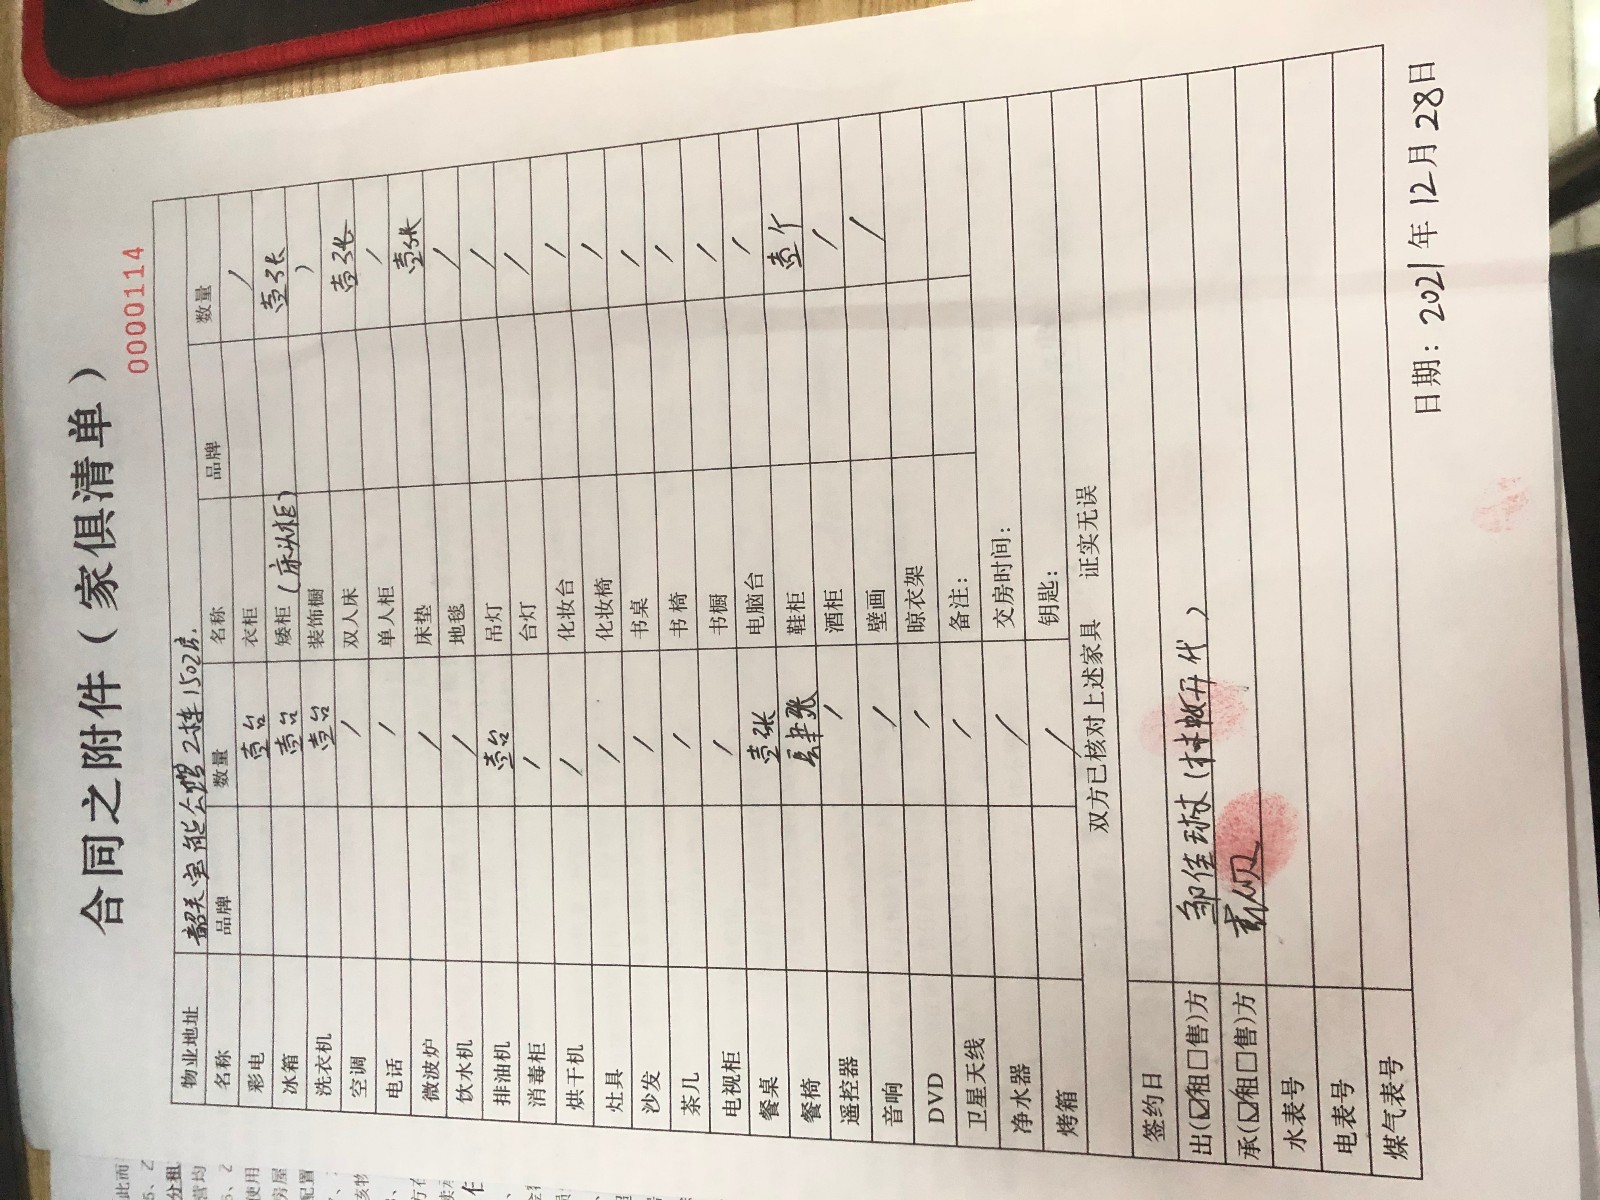 合同之附件（家俱清单）
0000114
物业地址 韶关宝能公馆2栋1502房.
名称 品牌 数量 名称 品牌 数量
彩电 壹台 衣柜 /
冰箱 壹台 矮柜(床头柜) 壹张
洗衣机 壹台 装饰橱 )
空调 / 双人床 壹张
电话 / 单人柜 /
微波炉 / 床垫 壹张
饮水机 / 地毯 /
排油机 壹台 吊灯 /
消毒柜 / 台灯 /
烘干机 / 化妆台 /
灶具 / 化妆椅 /
沙发 / 书桌 /
茶儿 / 书椅 /
电视柜 / 书橱 /
餐桌 壹张 电脑台 /
餐椅 肆张 鞋柜 壹个
遥控器 / 酒柜 /
音响 / 壁画 /
DVD / 晾衣架
卫星天线 / 备注：
净水器 / 交房时间：
烤箱 / 钥匙：
双方已核对上述家具 证实无误
签约日
出(☑租□售)方 邹佳 代)
承(☑租□售)方
水表号
电表号
煤气表号
日期：2021年12月28日